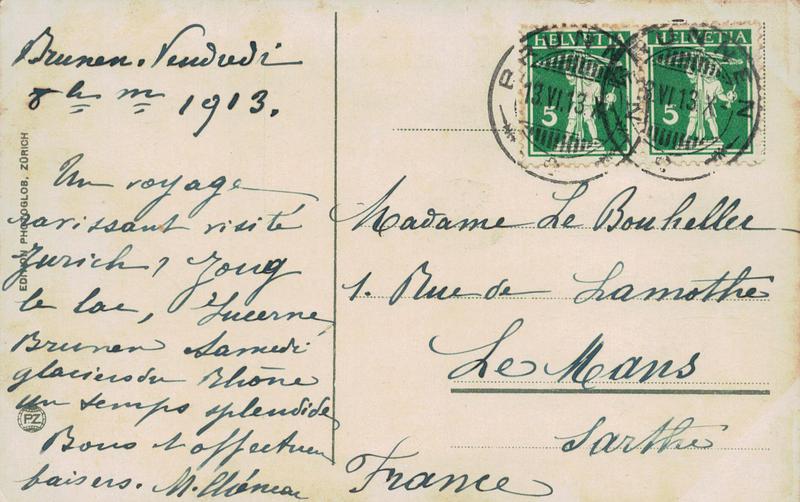 Brunen. Vendredi
8 h m 1913.
Un voyage
ravissant visité
Zurich, Zoug
le lac, Lucerne,
Brunen Samedi
glaciers du Rhône
un temps splendide
Bons & affectueux
baisers.
EDITION PHOTOGLOB, ZÜRICH
PZ
HELVETIA
5
HELVETIA
5
BRUNNEN
13.VI.13
BRUNNEN
13.VI.13
Madame Le Bouheller
1. Rue de Lamothe
Le Mans
Sarthe
France